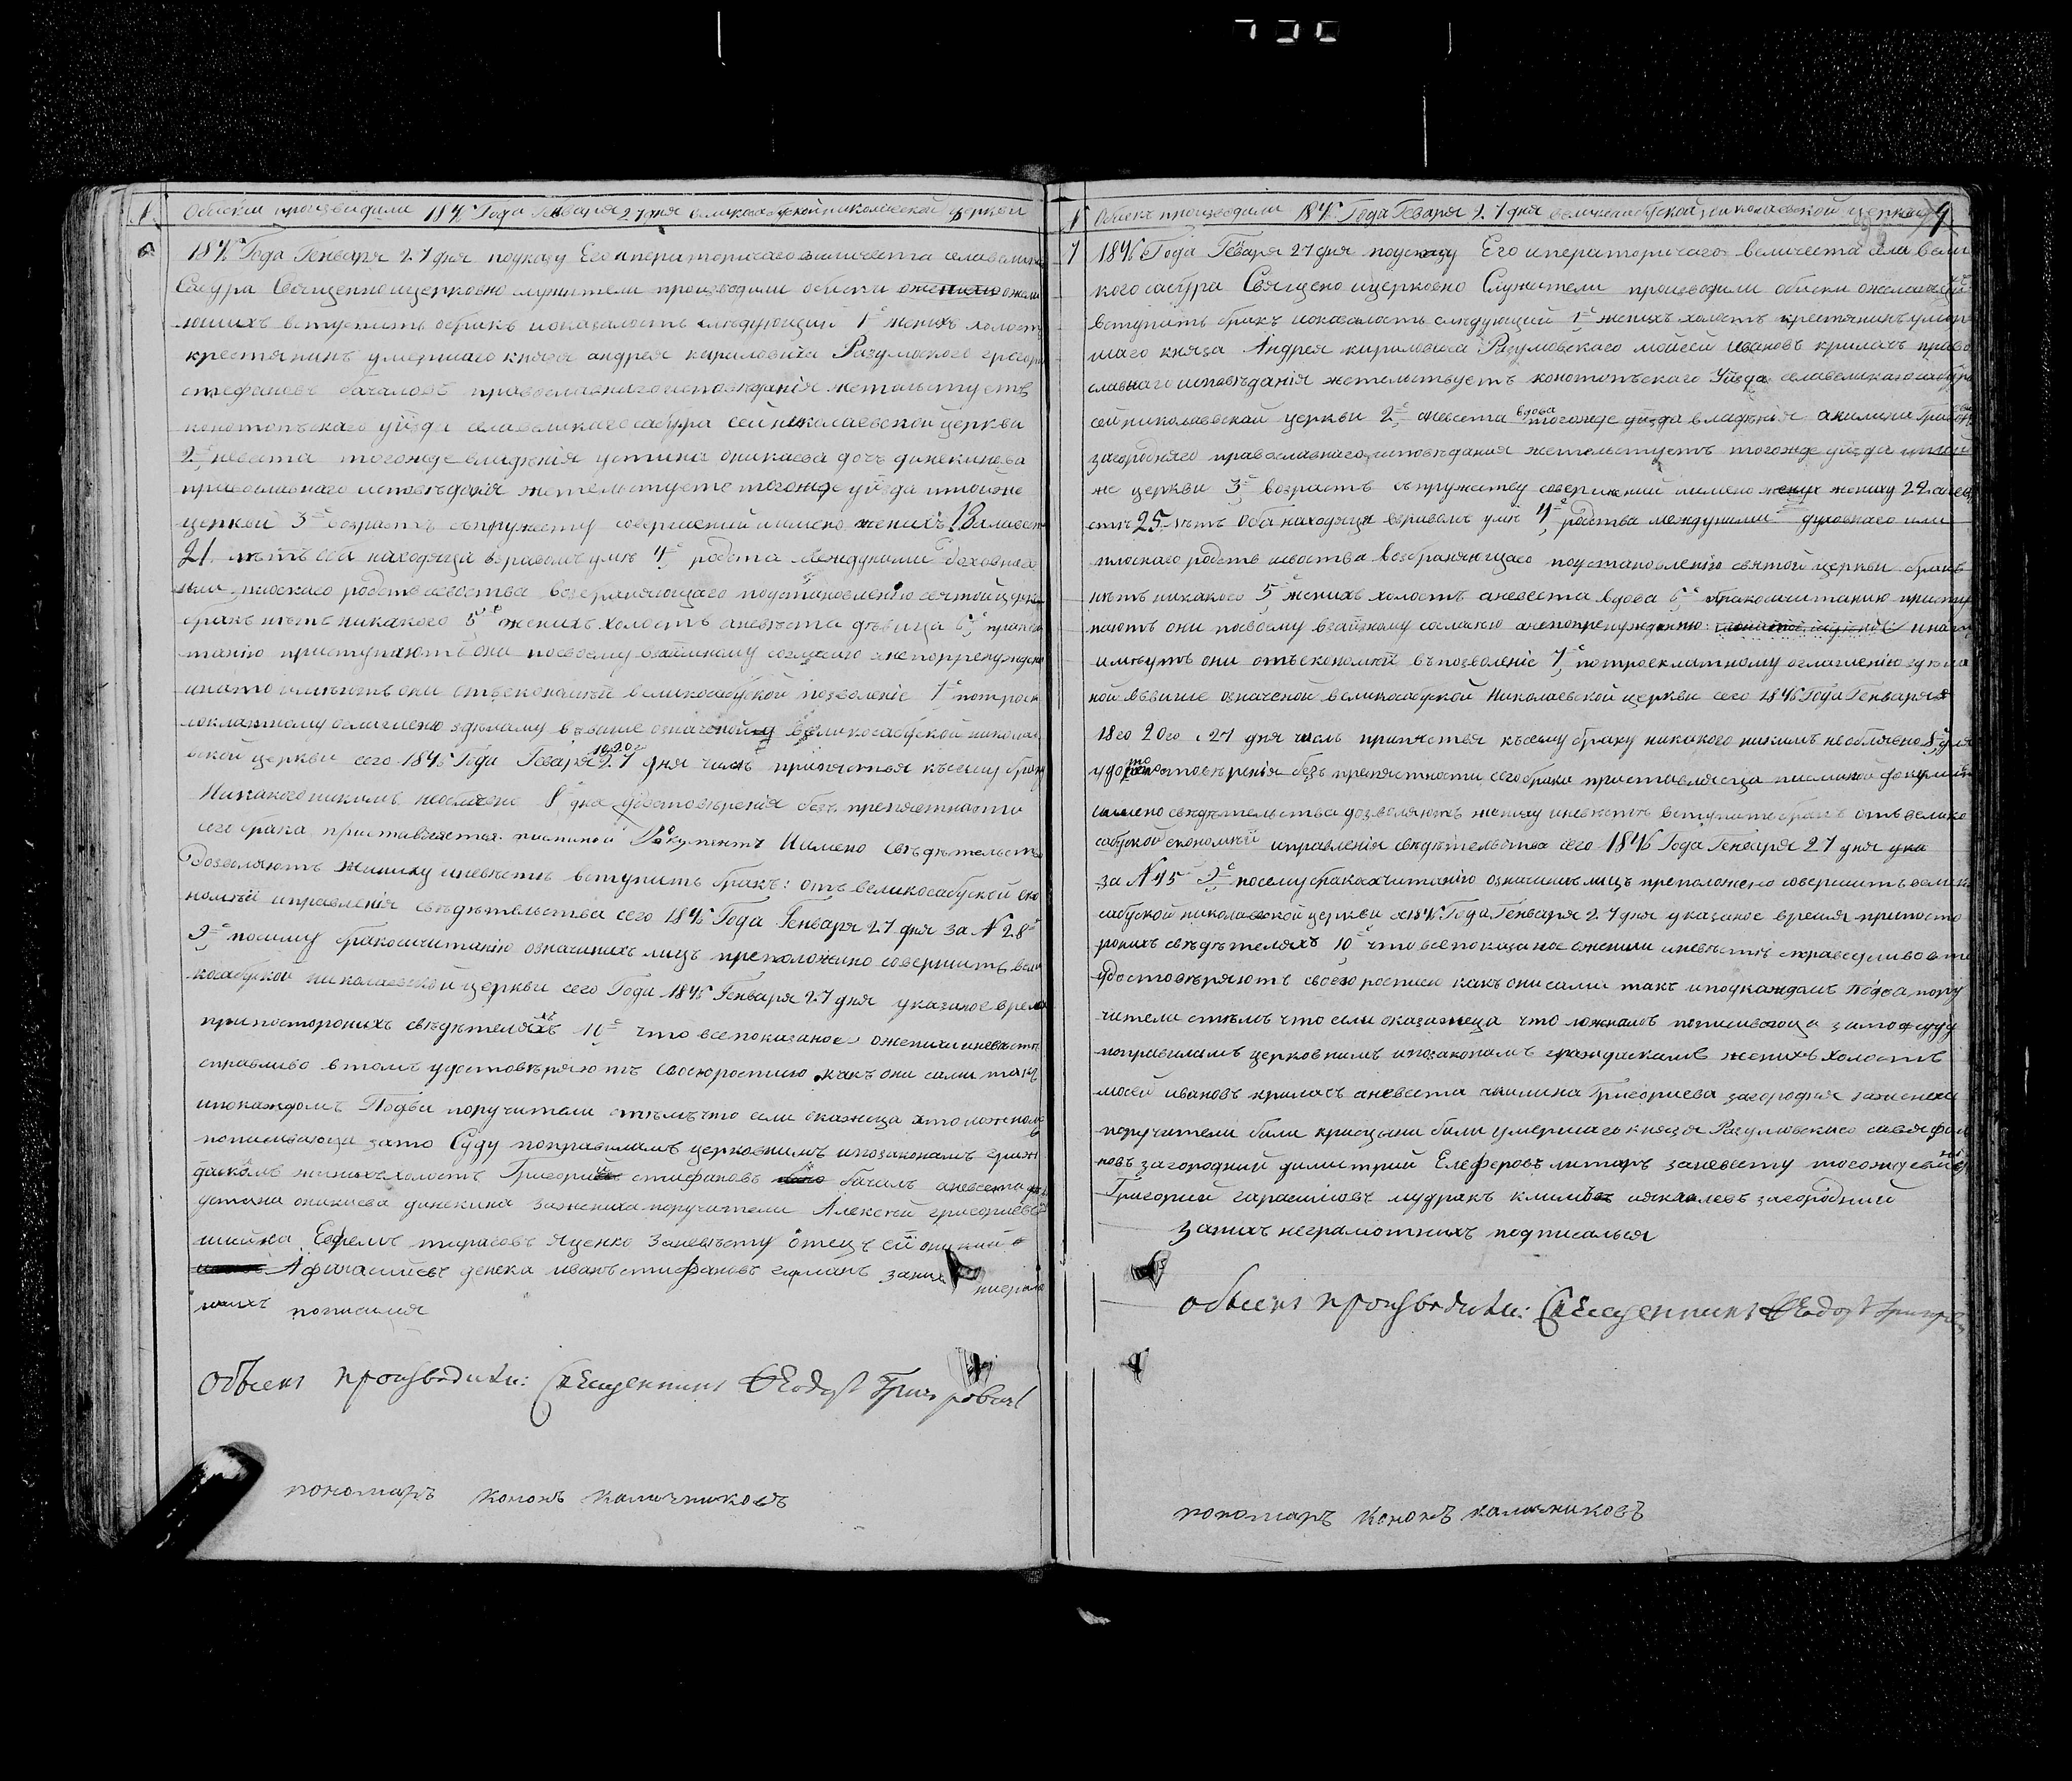 Обиски производили 1846 Года Генваря 27 дня великосабуской николаевской церкви
6
1846 Года Генваря 27 дня по указу Его императоричаго величества села велика
Сабура Священно ицерковно служители производили обиски о жела
ющихъ вступить вбракъ и оказалость следующии 1е женихъ холость
крестянинъ умершаго князя андрея кириловича Разумоского григори
стефановъ бачаловъ православнаго исповѣданія жетельстуетъ
конотопъскаго уйзда села великаго сабура сей николаевской церкви
2е невеста тогожде владенія устина оникаева дочь динекинова
православнаго исповѣданія жетельстуете тогожде уйзда и тойже
церквй 3е возрасть съпружесту совершений имено женихъ 18 а невест
21 лѣтъ оба находяца вправомъ умѣ 4е родста междуними духовнаго
или плоскаго родстъ свеоства возераняющаго по установлению святой церкви
бракъ нѣтъ никакого 5е женихъ холостъ аневѣста дѣвица 6е
танію приступаютъ они посвоему взаймному согласию анепопренуждению
инато имѣютъ они отъ економий великосабуской позволеніе
оклатному оглашению здѣлану ввыше означеной великосабуской никола
вской церкви сего 1846 Года Генваря 18, 20 27 дня числъ припятствя къ сему браку
Никакого никимъ необявлено 8е для удостовѣренія безъ препятности
сего брака приставляется писмной Документъ Имено свѣдетельство
Дозволяютъ Жениху иневѣсте вступить бракъ: отъ великосабуской еко
номѣи иправленія свѣдѣтельства сего 1846 Года Генваря 27 дня за N 28
9е посему бракосочитанію означинихъ лицъ преположено совершить вели
косабуской николаевской церкви сего Года 1846 Генваря 27 дня указаное время
припосторонихъ свѣдѣтеляхъ 10е что все показаное о женихи и невести
справливо втомъ удостовѣряютъ своею росписю какъ они сами такъ
ипокаждомъ Подва поручители стѣмъ что если окажеца что ложномъ
пописиваюца зато Суду поправиламъ церковнимъ ипозаконамъ граж
даскимъ женихъ холостъ Григорий стифановъ бачилъ аневеста
устина оникиева динекина зажениха поручители Алексѣй григориевъ
Ефремъ тарасовъ Яценко Заневѣсту отецъ ей оникий
Афанасиевъ денека иванъ стифановъ гаманъ за нихъ неграмо
тнихъ пописался
обыскъ производили: Священникъ Феодосій Григоровичъ
пономаръ Кононъ Калачниковъ
Обискъ производили 1846 Года Генваря 27 дня великосабуской николаевской церкви
9
7
1846 Года Генваря 27 дня по указу Его императоричаго величеста села вели
кого сабура Священо ицерковно Служители производили обиски о желающий
вступить бракъ иоказалость следующий 1е женихъ холостъ крестянинъ умер
шаго князя Андрея кириловича Разумовскаго мойсей ивановъ крилачъ право
славнаго исповѣданія жетельствуетъ конотопъскаго Уйзда села великаго сабура
сей николаевской церкви 2е аневеста вдова тогожде уйзда владѣнія акилина григориева
загородняго православнаго исповѣдания жетельстуетъ тогожде уйзда итой
же церкви 3е возрастъ съпружеству совершений имено жениху 22 а невѣ
стѣ 25 лѣтъ Оба находяця вправомъ умѣ 4е родства междуними духовнаго или
плоскаго родстъ исвоства Возбраняющаго поустановленію святой церкви бракъ
нѣтъ никакого 5е женихъ холостъ аневеста вдова 6е бракосочитанию присту
паютъ они посвоему взаймному согласию анепопренуждению инато
имѣутъ они отъ економий въпозволеніе 7е потроекратному оглашению здѣла
ной ввышше означеной великосабуской Николаевской церкви сего 1846 Года Генваря
18го 20го и 27 дня числъ припятствя къ сему браку никакого никимъ необявлено 8е для
удостовѣренія безъ препятности сего брака приставляеца писменой документъ
имено свѣдѣтельства дозволяютъ жениху иневѣстѣ вступить бракъ отъ велико
сабуской економѣй иправленія свѣдѣтелства сего 1846 Года Генваря 27 дня
за N 45 9е посему бракосочитанію означинихъ лицъ преположено совершить велико
сабуской николаевской церкви 1846 Года Генваря 27 дня указаное время припосто
ронихъ свѣдѣтеляхъ 10е что все показаное о женихи иневѣстѣ справедливо втомъ
удостовѣряютъ своею росписи какъ они сами такъ ипокаждомъ подва пору
чители стѣмъ что если оказажеца что ложномъ пописиваюца зато суду
поправиламъ церковнимъ ипозаконамъ граждаскимъ женихъ холостъ
мосей ивановъ крилачъ аневеста акилина Григориева загородня зажениха
поручители били крисцяни били умершаго князя Разумовскаго
загородний димитрий Елеферовъ литаръ заневесту тогожде
Григорий гарасимовъ мудракъ климъ яковлевъ загородний
Занихъ неграмотнихъ подписалься
обыскъ производили: Священникъ Феодосій Григоровичъ
пономаръ Кононъ калачниковъ